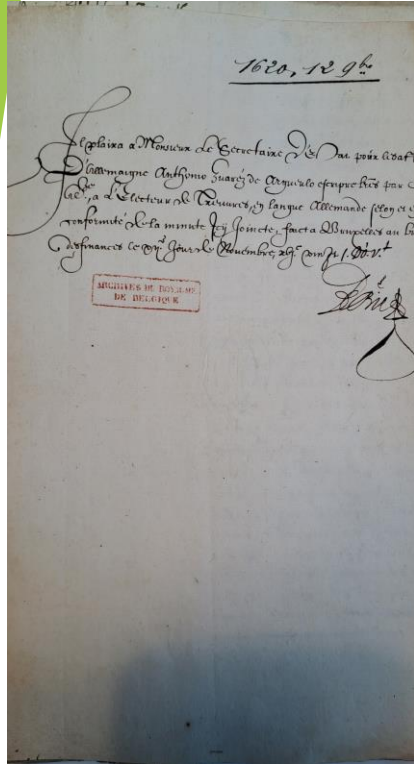 1620, 12 9bre
Il plaira a Monsieur Le Secretaire D'Estat pour lestat
D'allemaigne Anthonio Suarez de Arguello escripre lres par
a l'Electeur de Treuves, en langue Allemande selon et
conformité de la minute Icy Joincte, faict a Bruxelles au
desfinances le xije Jour de Novembre xvjc vingt
ARCHIVES DU ROYAUME
DE BELGIQUE